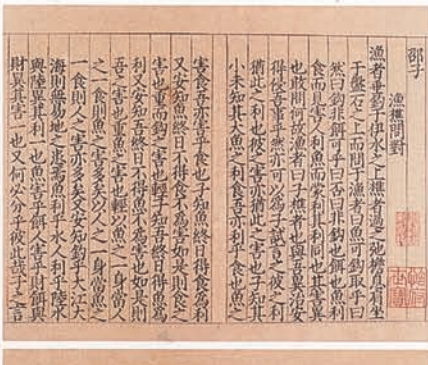 邵子
漁樵問對
漁者垂釣于伊水之上樵者過之弛擔息肩坐
于盤石之上而問于漁者曰魚可鉤取乎曰
然曰鉤非餌可乎曰否曰非鉤也餌也魚利
食而見害人利魚而蒙利其利同也其害異
也敢問何故漁者曰子樵者也與吾異治安
得侵吾事乎然亦可以為子試言之彼之利
猶此之利也彼之害亦猶此之害也子知其
小未知其大魚之利食吾亦利乎食也魚之
害食吾亦害乎食也子知魚終日得食為利
又安知魚終日不得食不為害如是則食之
害也重而鉤之害也輕子知吾終日得魚為
利又安知吾終日不得魚不為害也如是則
吾之害也重魚之害也輕以魚之一身當人
之一食則魚之害多矣以人之一身當魚之
一食則人之害亦多矣又安知釣乎大江大
海則無易地之患焉魚利乎水人利乎陸水
與陸異其利一也魚害乎餌人害乎財餌與
財異其害一也又何必分乎彼此哉子之言